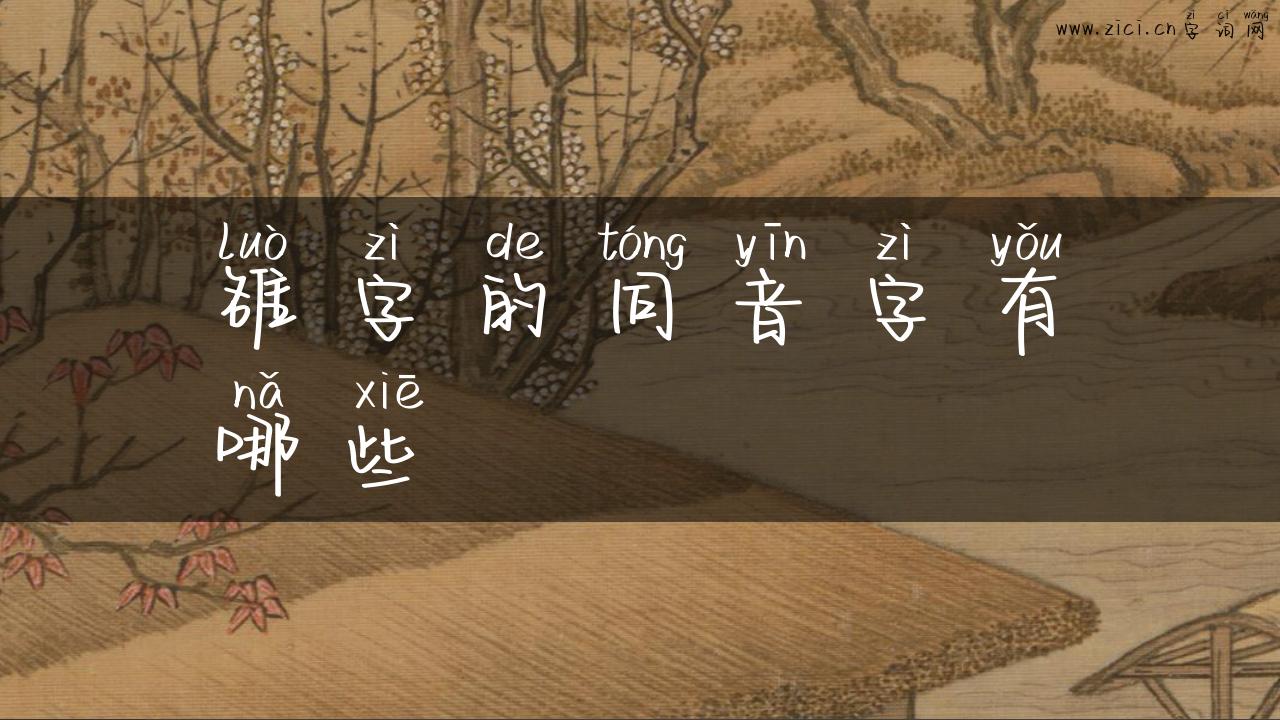 zì cí wǎng
www.zici.cn字词网
luò zì de tóng yīn zì yǒu
雒字的同音字有
nǎ xiē
哪些